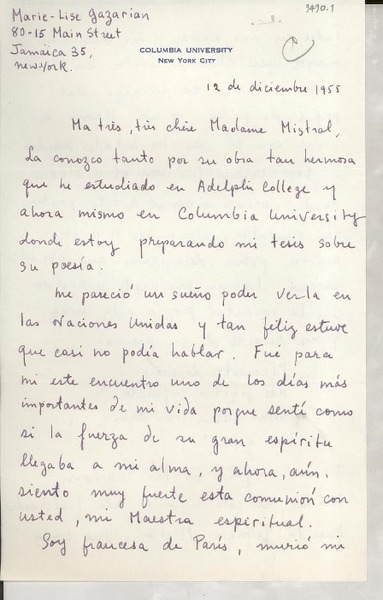 Marie-Lise Gazarian
80-15 Main Street
Jamaica 35,
New York.
3490.1
COLUMBIA UNIVERSITY
NEW YORK CITY
12 de diciembre 1955
Ma très, très chère Madame Mistral,
La conozco tanto por su obra tan hermosa
que he estudiado en Adelphi College y
ahora mismo en Columbia University
donde estoy preparando mi tesis sobre
su poesía.
Me pareció un sueño poder verla en
las Naciones Unidas y tan feliz estuve
que casi no podía hablar. Fué para
mí este encuentro uno de los días más
importantes de mi vida porque sentí como
si la fuerza de su gran espíritu
llegaba a mi alma, y ahora, aún,
siento muy fuerte esta comunión con
usted, mi Maestra espiritual.
Soy francesa de París, murió mi